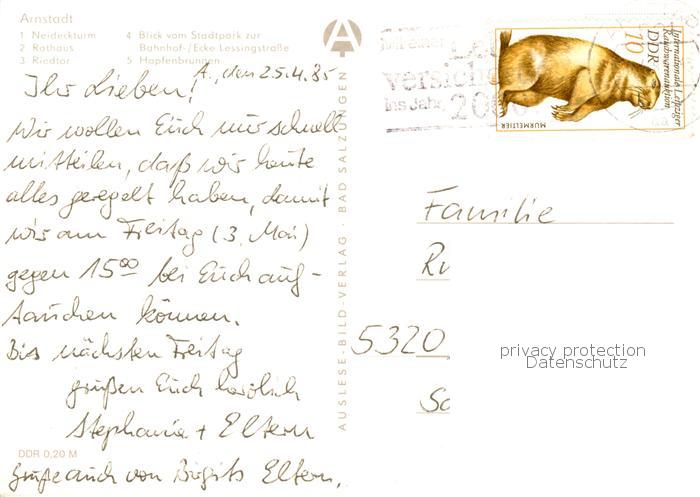 Arnstadt
1 Neideckturm
2 Rathaus
3 Riedtor
4 Blick vom Stadtpark zur
Bahnhof-/Ecke Lessingstraße
5 Hopfenbrunnen
A., den 25.4.85
Ihr Lieben!
Wir wollen Euch nur schnell
mitteilen, daß wir heute
alles geregelt haben, damit
wir am Freitag (3. Mai)
gegen 15⁰⁰ bei Euch auf-
tauchen können.
Bis nächsten Freitag
grüßen Euch herzlich
Stephanie + Eltern
Grüße auch von Birgits Eltern.
DDR 0,20 M
AUSLESE-BILD-VERLAG · BAD SALZUNGEN
A
versiche
ins Jahr 20
Internationale Leipziger
Rauchwarenauktion
DDR
10
MURMELTIER
Familie
Ru
5320
Sc
privacy protection
Datenschutz